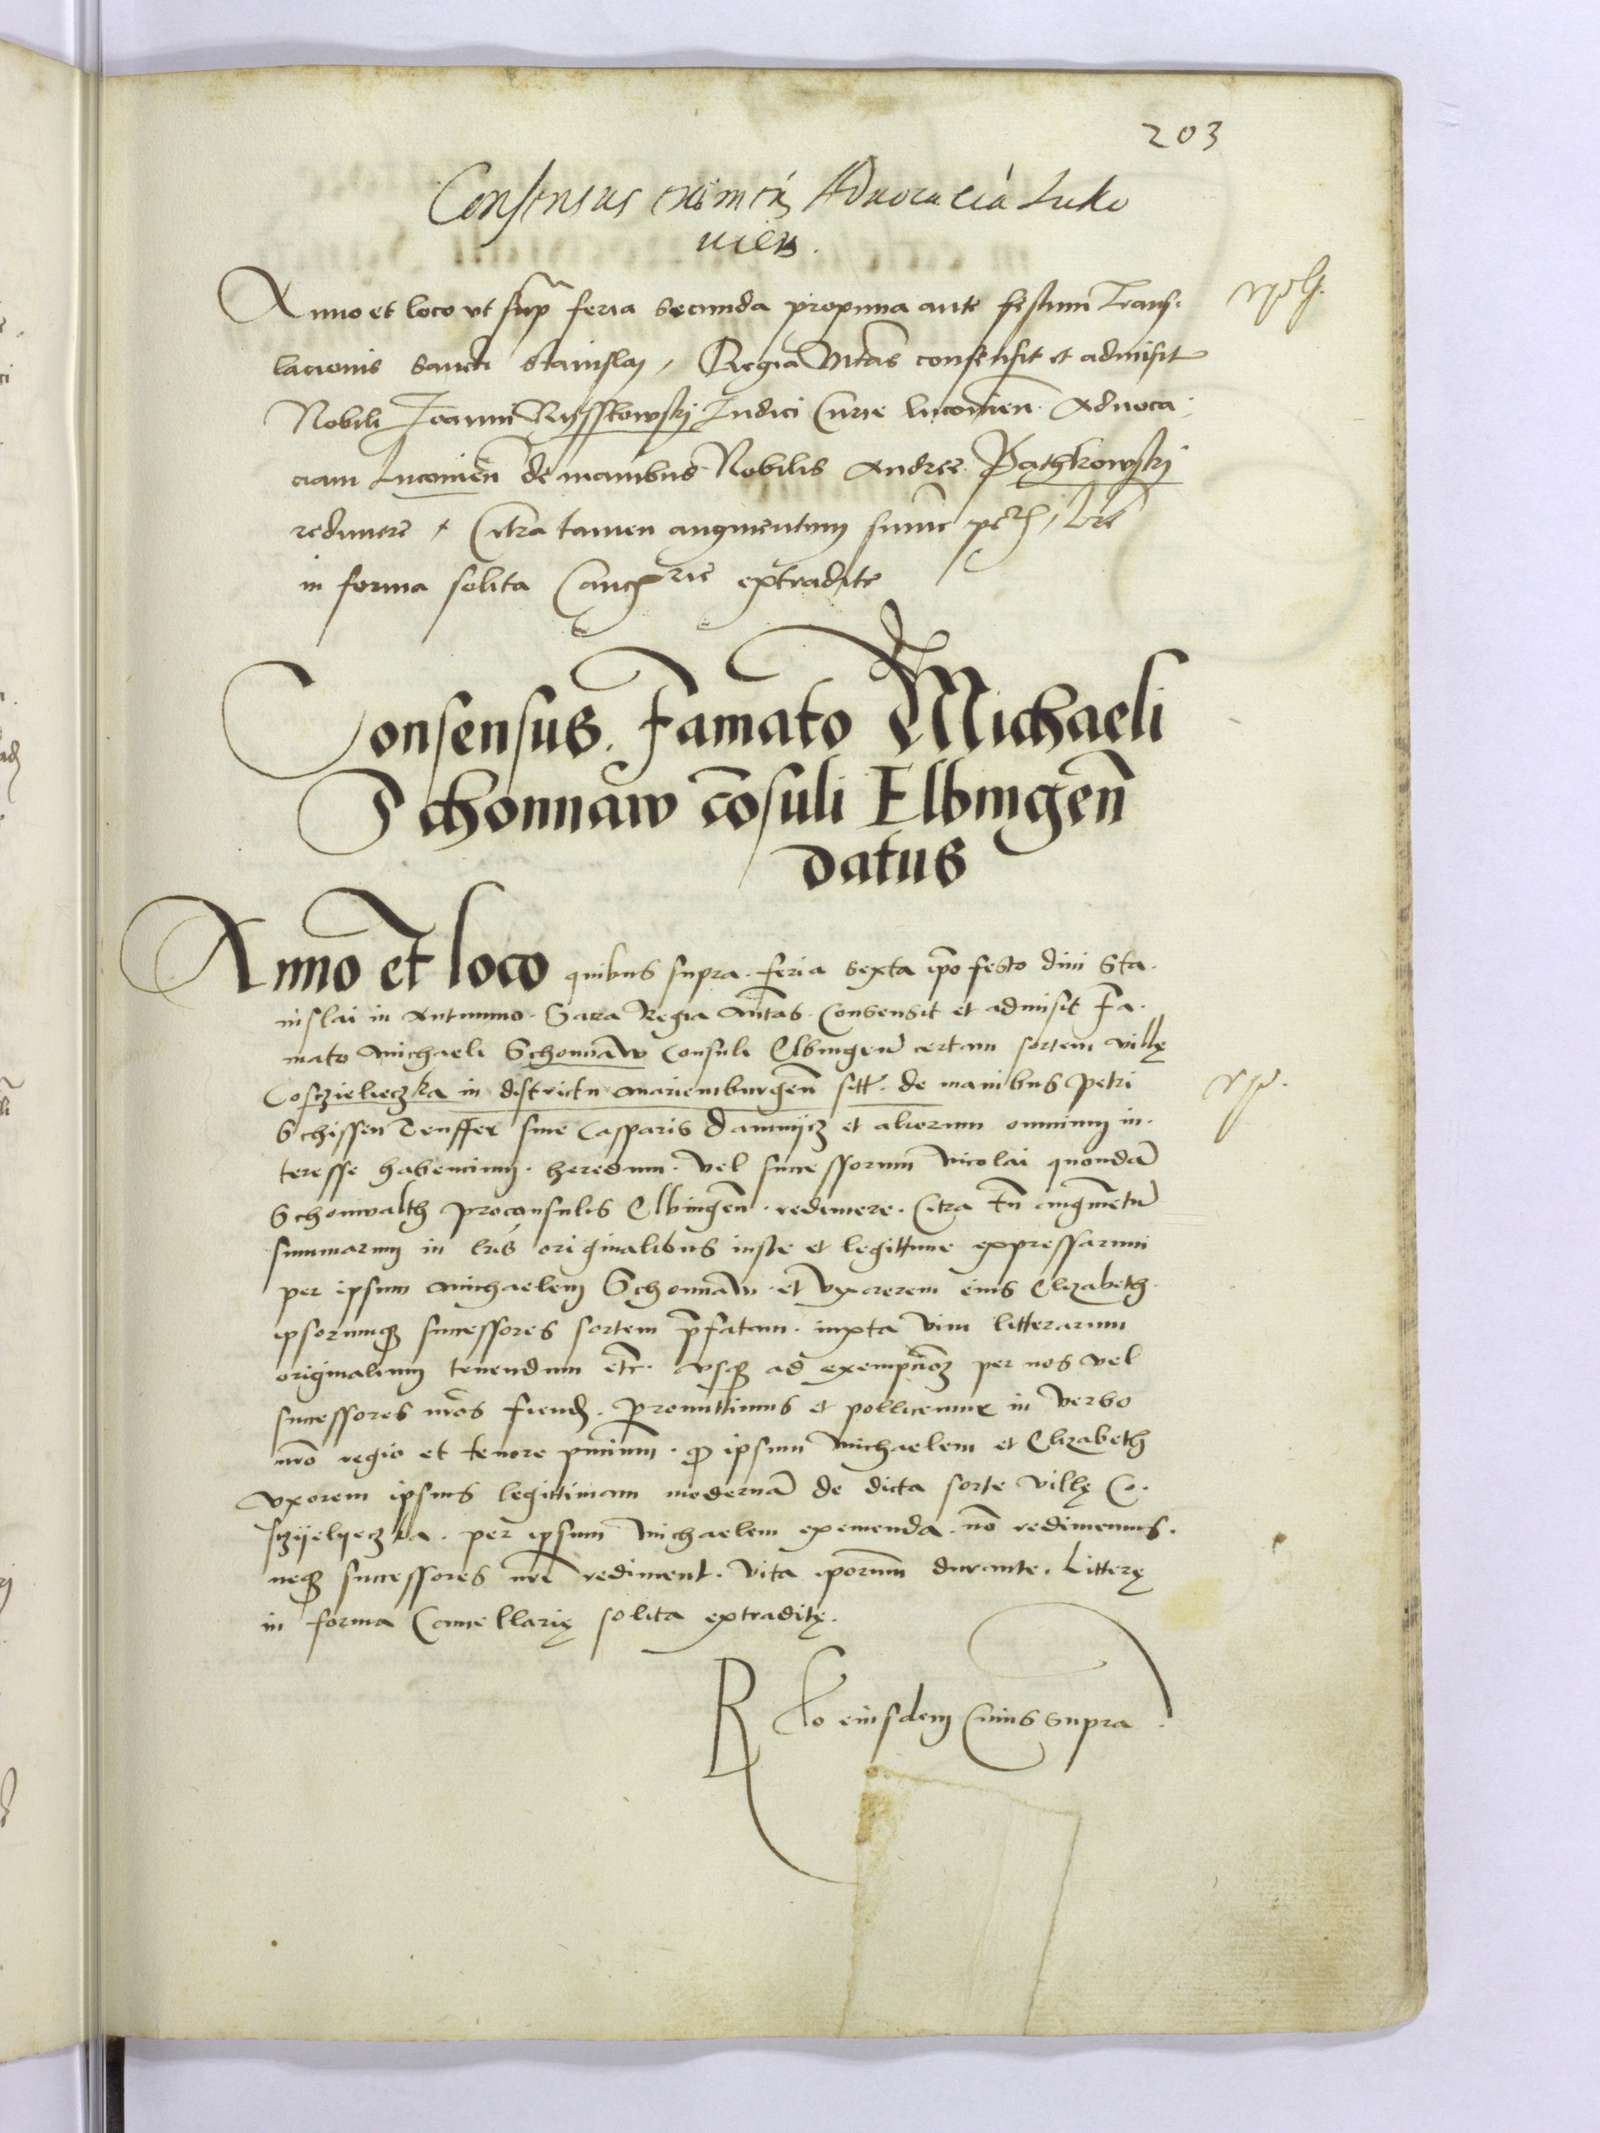 203
Consensus Advocacia Luko
vien.
Anno et loco vt sup feria secunda proxima ante festum Trans-
lacionis Sancti Stanislaj, Regia Mtas consensit et admisit
Nobili Joanni Rysskowskj Judici Curie lucovien. Advoca-
ciam Lucovien de manibus Nobilis Andree Pathkowskj
redimere, Citra tamen augmentum summe, lre
in forma solita Canc rie extradite
Consensus. Famato Michaeli
Schonnaw cōsuli Elbingen̄
datus
Anno et loco quibus supra. feria sexta ipo festo divi Sta-
nislai in Autumno. Sacra Regia Mtas. Consensit et admisit Fa-
mato Michaeli Schonnaw Consuli Elbingen̄ certam sortem villę
Cosczielieczka in districtu Mariemburgen̄ sitt. de manibus Petri
Schissen Teuffer sive Casparis Damniicz et aliorum omnium in-
teresse habencium. heredum. vel successorum Nicolai quondā
Schonwalth proconsulis Elbingen̄. redimere. Citra tn̄ augmētū
summarum in lris originalibus iuste et legittime expressarum
per ipsum Michaelem Schonnaw. et vxorem eius Elizabeth.
ipsorumqꝫ successores sortem p̄fatam. iuxta vim litterarum
originalium tenendum etc. vsqꝫ ad exempcioꝫ per nos vel
successores nros fiend. Promittimus et pollicemur in verbo
nro regio et tenore pn̄cium. ꝙ ipsum Michaelem et Elizabeth
vxorem ipsius legittimam modernā de dicta sorte villę Co-
scziielyeczka. per ipsum Michaelem eximenda. nō redimemus.
neqꝫ successores nri rediment. vita iporum durante. Litterę
in forma Cancellarię solita extraditę.
R̄ lo eiusdem Cuius supra.